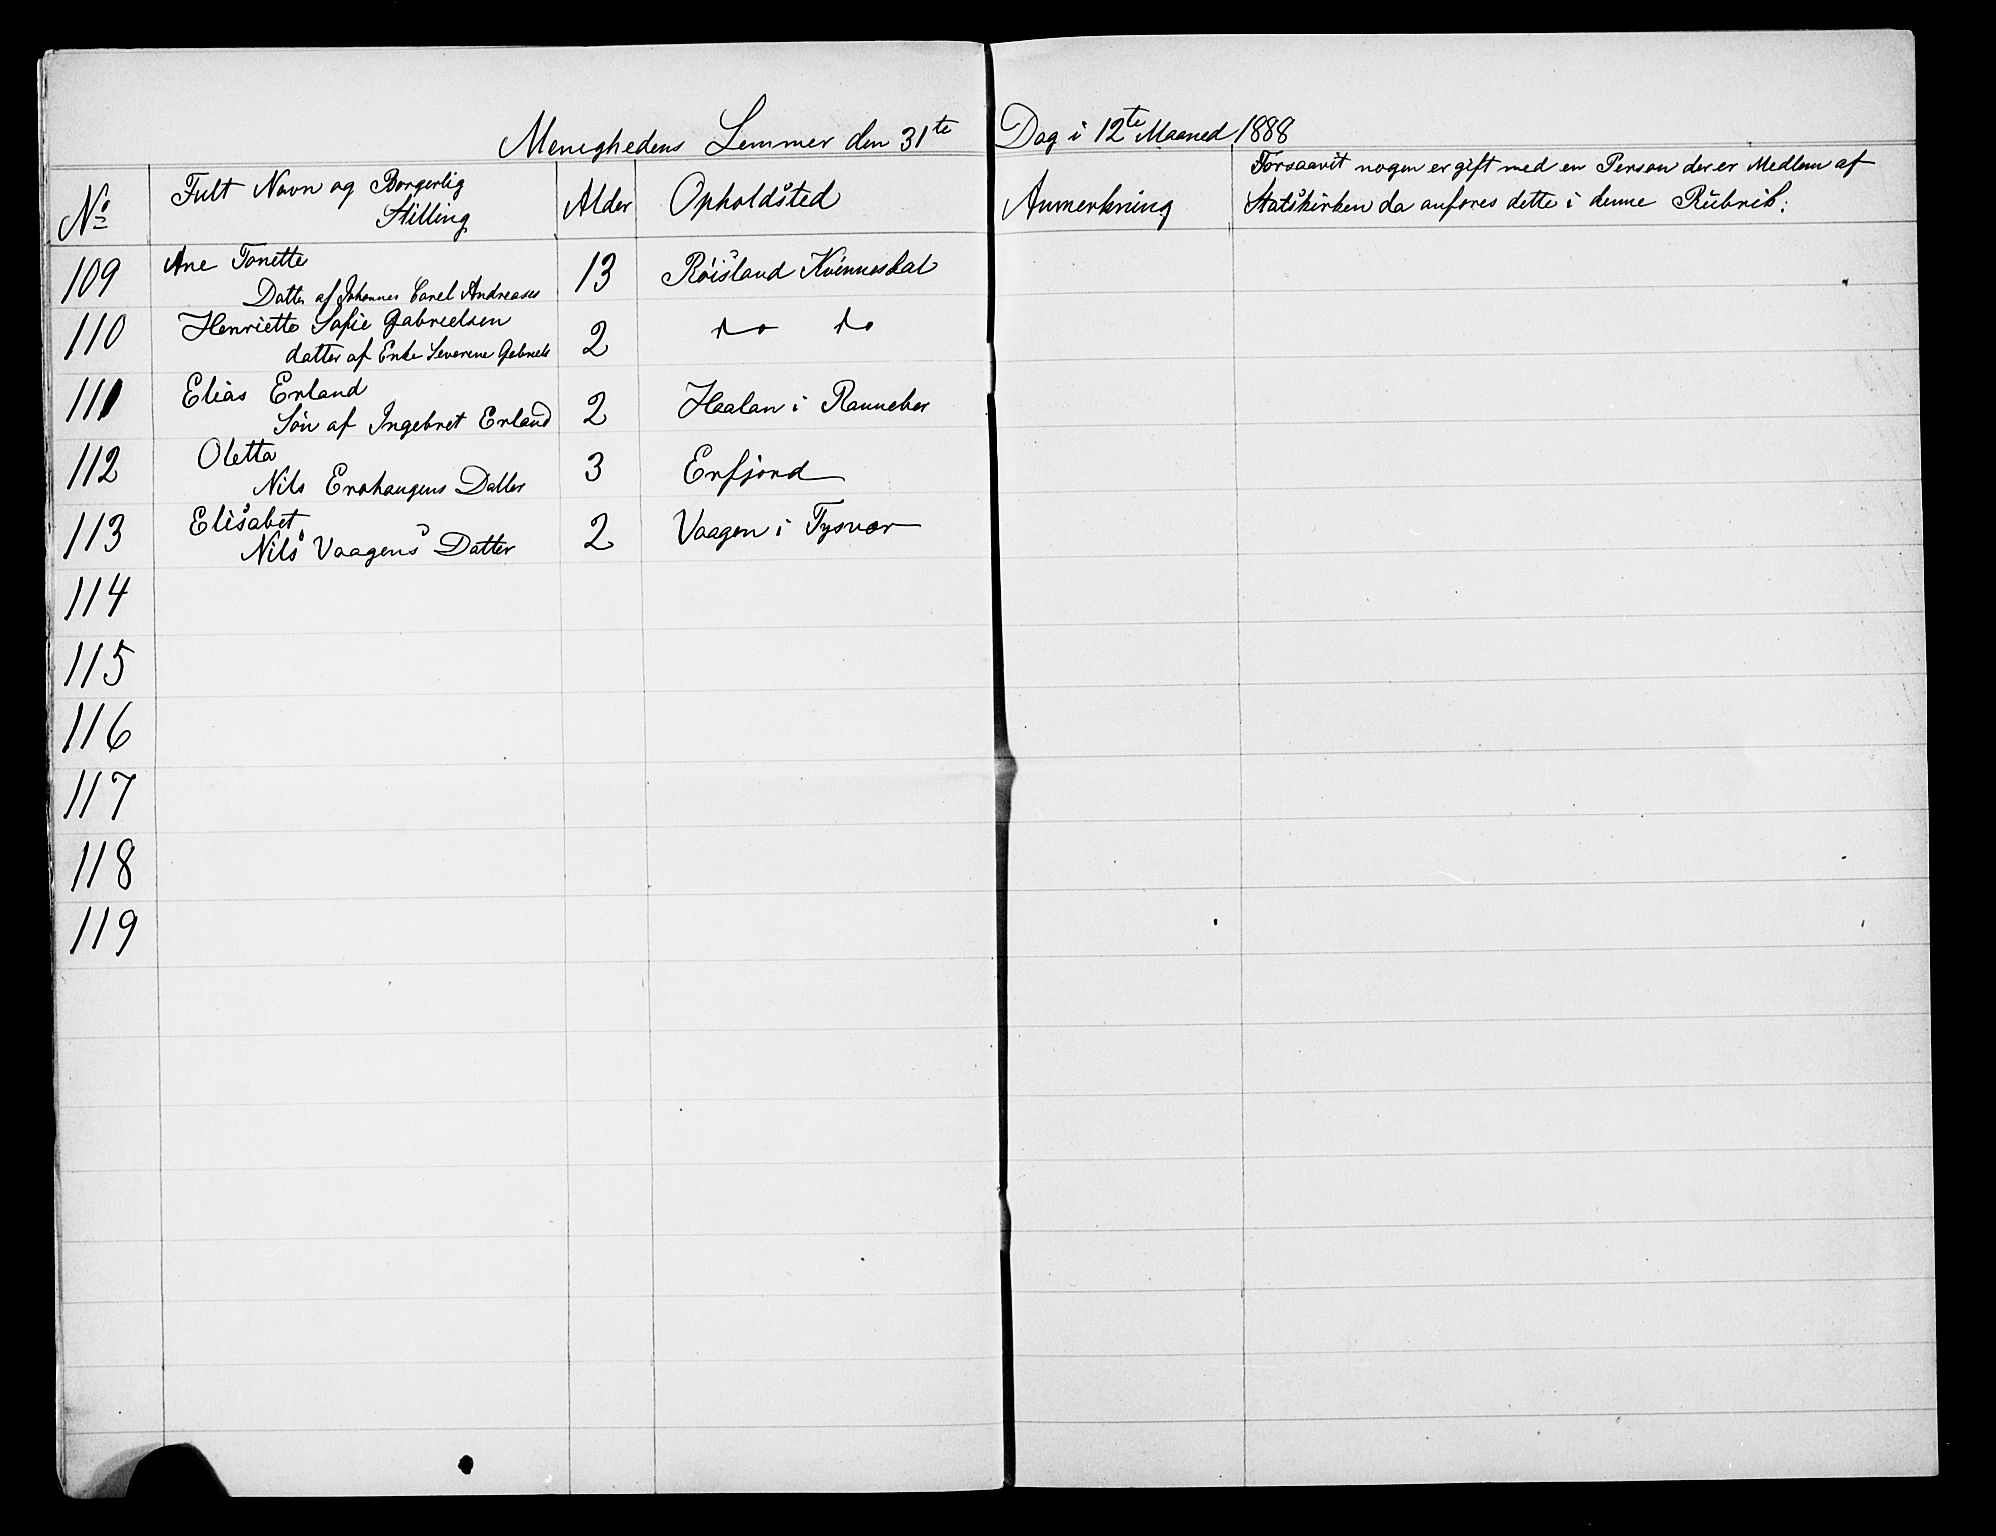 Menighedens Lemmer den 31te Dag i 12te Maaned 1888
No Fult Navn og Borgerlig Stilling Alder Opholdsted Anmerkning Forsaavit nogen er gift med en Person der er Medlem af
Statskirken da anføres dette i denne Rubrik:
109 Ane Tonette 13 Røisland Kvinnesdal
Datter af Johannes Carel Andreases
110 Henriette Sofie Gabrielsen 2 do do
datter af Enke Severine Gabriels
111 Elias Erland 2 Haalan i
Søn af Ingebret Erland
112 Oletta 3 Erfjord
Nils Datter
113 Elisabet 2 Vaagen i Tysvær
Nils Vaagens Datter
114
115
116
117
118
119